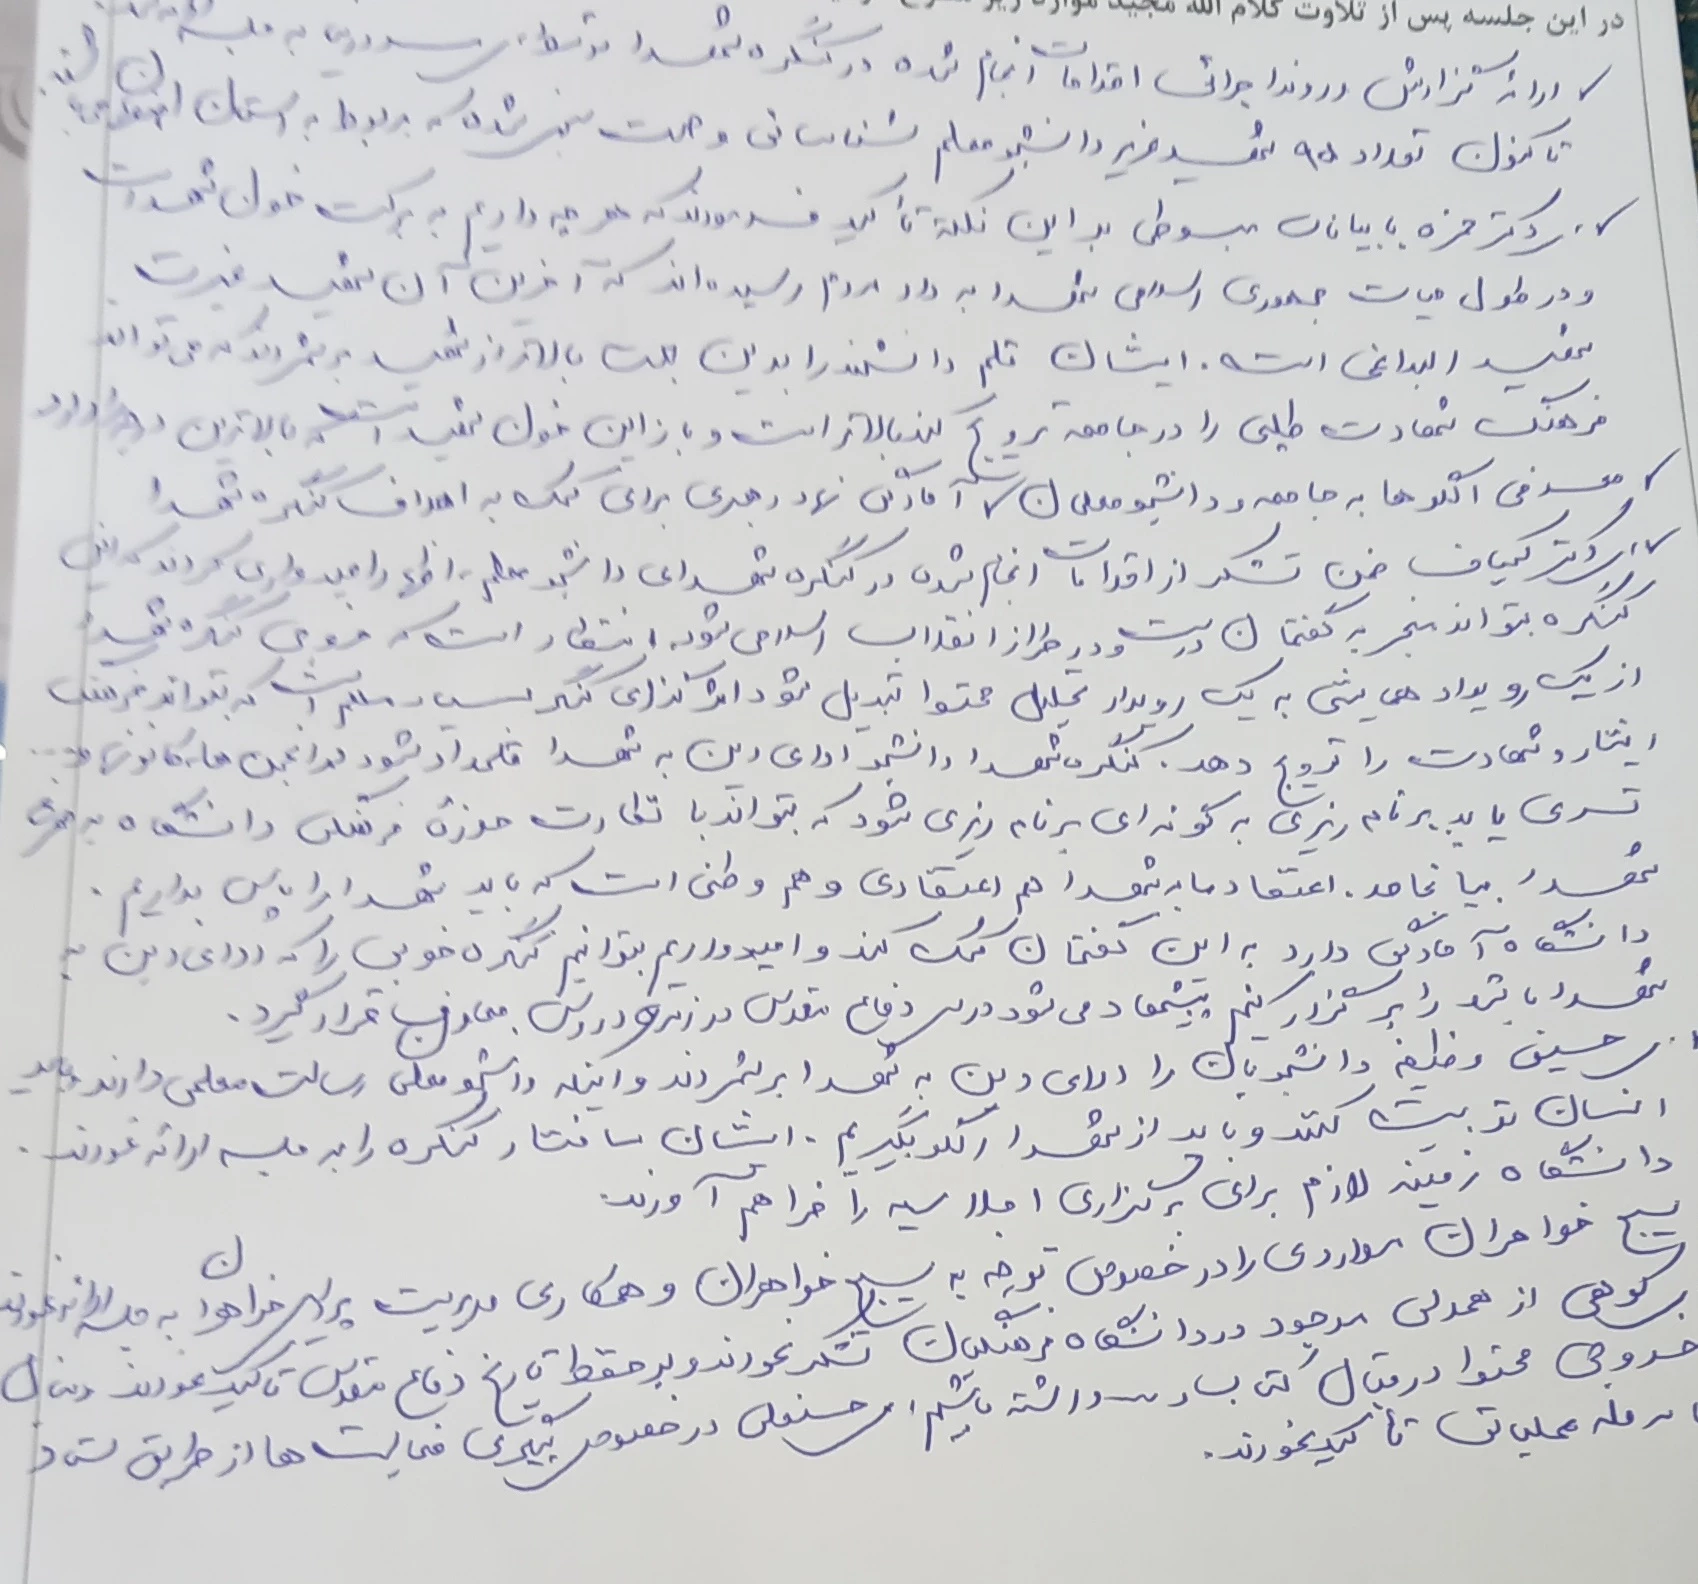 در این جلسه پس از تلاوت کلام الله مجید موارد زیر
ارائه گزارش روند اجرائی اقدامات انجام شده در کنگره شهدا توسط به جلسه
تا کنون تعداد ۹۵ شهید عزیز دانشجو معلم شناسائی و شده که مربوط به استان
دکتر حمزه با بیانات مبسوطی بر این نکته تأکید فرمودند که هر چه داریم به برکت خون شهداست
و در طول حیات جمهوری اسلامی شهدا به داد مردم رسیده اند که آخرین آن شهید غیرت
شهید الداغی است. ایشان قلم دانشمند را بدین جهت بالاتر از شهید برشمردند که می تواند
فرهنگ شهادت طلبی را در جامعه ترویج کند بالاتر است و باز این خون شهید است که بالاترین را دارد
معرفی الگوها به جامعه و دانشجو معلمان آمادگی نهاد رهبری برای کمک به اهداف کنگره شهدا
دکتر ضمن تشکر از اقدامات انجام شده در کنگره شهدای دانشجو معلم، اظهار امیدواری کردند که این
کنگره بتواند منجر به گفتمان درست و در طراز انقلاب اسلامی شود. انتظار است که خروجی کنگره شهدا
از یک رویداد همایشی به یک رویداد تحلیل محتوا تبدیل شود اثرگذاری کنگره بسیار مهم است که بتواند فرهنگ
ایثار و شهادت را ترویج دهد. کنگره شهدا دانشجو ادای دین به شهدا قلمداد شود به انجمن ها، کانونها و...
تسری یابد برنامه ریزی به گونه ای برنامه ریزی شود که بتواند با نظارت حوزه فرهنگی دانشگاه به
شهدا بیانجامد. اعتقاد ما به شهدا هم اعتقادی و هم وطنی است که باید شهدا را پاس بداریم.
دانشگاه آمادگی دارد به این گفتمان کمک کند و امیدواریم بتوانیم کنگره خوبی را که ادای دین به
شهدا باشد را برگزار کنیم پیشنهاد می شود درس دفاع مقدس در زمره دروس معارف قرار گیرد.
حسینی وظیفه دانشجویان را ادای دین به شهدا برشمردند و اینکه دانشجو معلمی رسالت معلمی دارند و باید
انسان تربیت کنند و باید از شهدا الگو بگیریم. ایشان ساختار کنگره را به جلسه ارائه نمودند.
دانشگاه زمینه لازم برای برگزاری اجلاسیه را فراهم آورند.
بسیج خواهران مواردی را در خصوص توجه به بسیج خواهران و همکاری مدیریت پردیس خواهران به جلسه ارائه نمودند
کوهی از همدلی موجود در دانشگاه فرهنگیان تشکر نمودند و بر حفظ تاریخ دفاع مقدس تاکید نمودند
خروجی محتوا در قبال کتاب داشته باشیم در خصوص پیگیری فعالیت ها از طریق ستاد
مرحله عملیاتی تأکید نمودند.